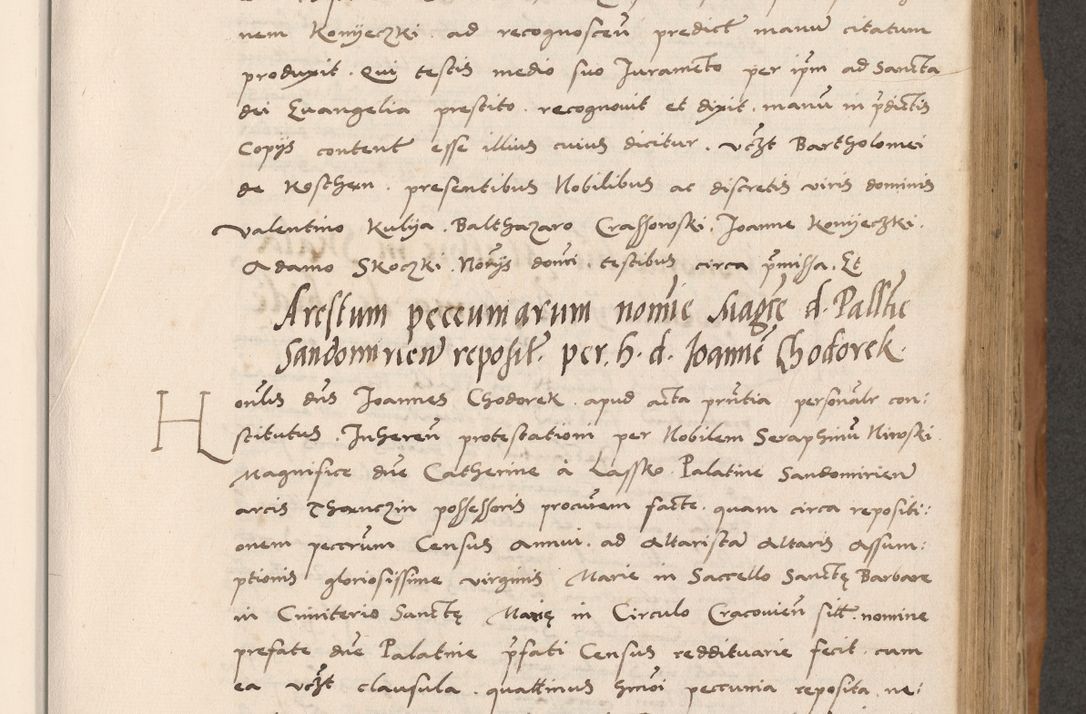 nem Konyeczki . ad recognoscen̄ predict manu citatum
produxit . Qui testis medio suo Juramēto per ip̄m ad Sancta
dei Euangelia prestito . recognouit et dixit . manū in p̄dictis
Copijs content esse illius cuius dicitur . vcʒt Bartholomei
de Koschen . presentibus Nobilibus ac discretis viris dominis
Valentino Kulya . Balthazaro Crassowski . Joanne Konyeczki .
Adamo Skoczki . Norijs domī . testibus circa p̄missa . Et
Arestum peccuniarum nomīe Magce d. Pallīie
Sandomirien̄ reposit. per. h. d. Ioannē Chodorek.
Honlis dn̄s Joannes Chodorek . apud acta prn̄tia personālr con:
stitutus . Inheren̄ protestationi per Nobilem Seraphinū Niwski
Magnifice dn̄e Catherine a Lassko . Palatine Sandomirien̄
arcis Thanczin possessoris procurem facte . quam circa repositi:
onem peccrum Census Annui . ad Altarista Altaris Assum:
ptionis gloriosissime virginis Marie in Saccello Sanctę Barbare
in Cimiterio Sanctę Marię in Circulo Cracouien̄ sitt . nomine
prefate dn̄e Palatine p̄fati Census reddituarie fecit . cum
ea vcʒt clausula . quattinus hm̄oi peccunia reposita . ne: